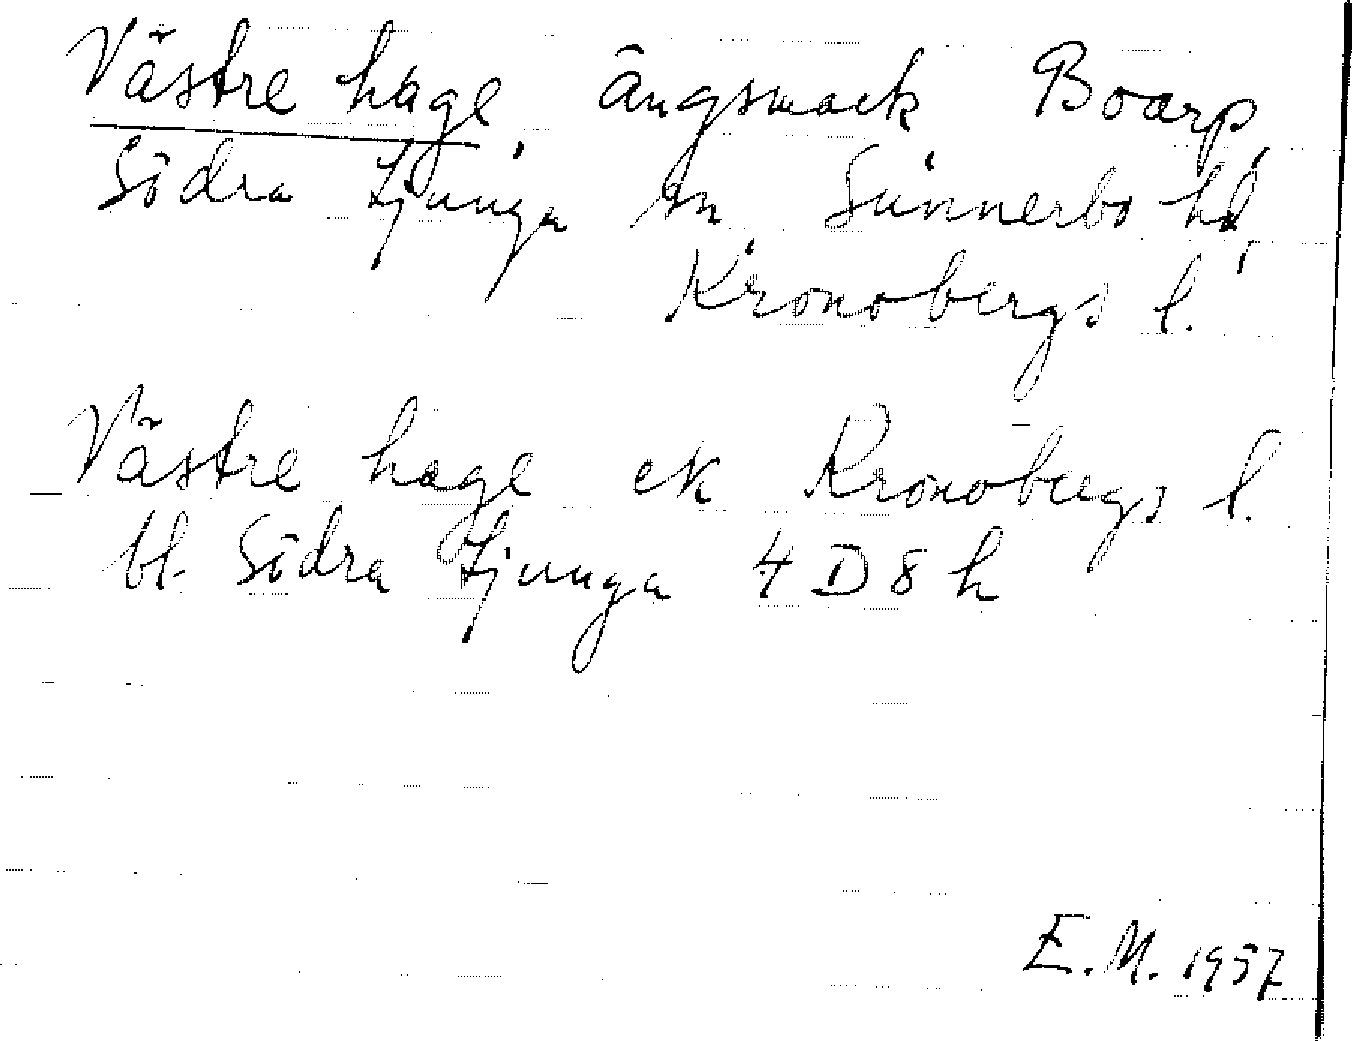 Västre hage, ängsmark Boarp,
Södra Ljunga sn Sunnerbo hd,
Kronobergs l.
Västre hage ek Kronobergs l.
bl. Södra Ljunga 4 D 8 h
E.M. 1957